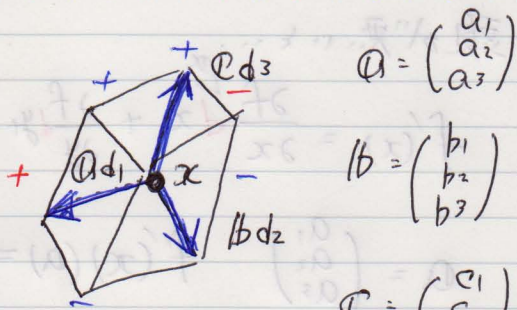 +
+ ℂd3
-
+ 𝕒d1 x -
𝕓d2
-
𝕒 = ( a1 a2 a3 )
𝕓 = ( b1 b2 b3 )
ℂ = ( c1